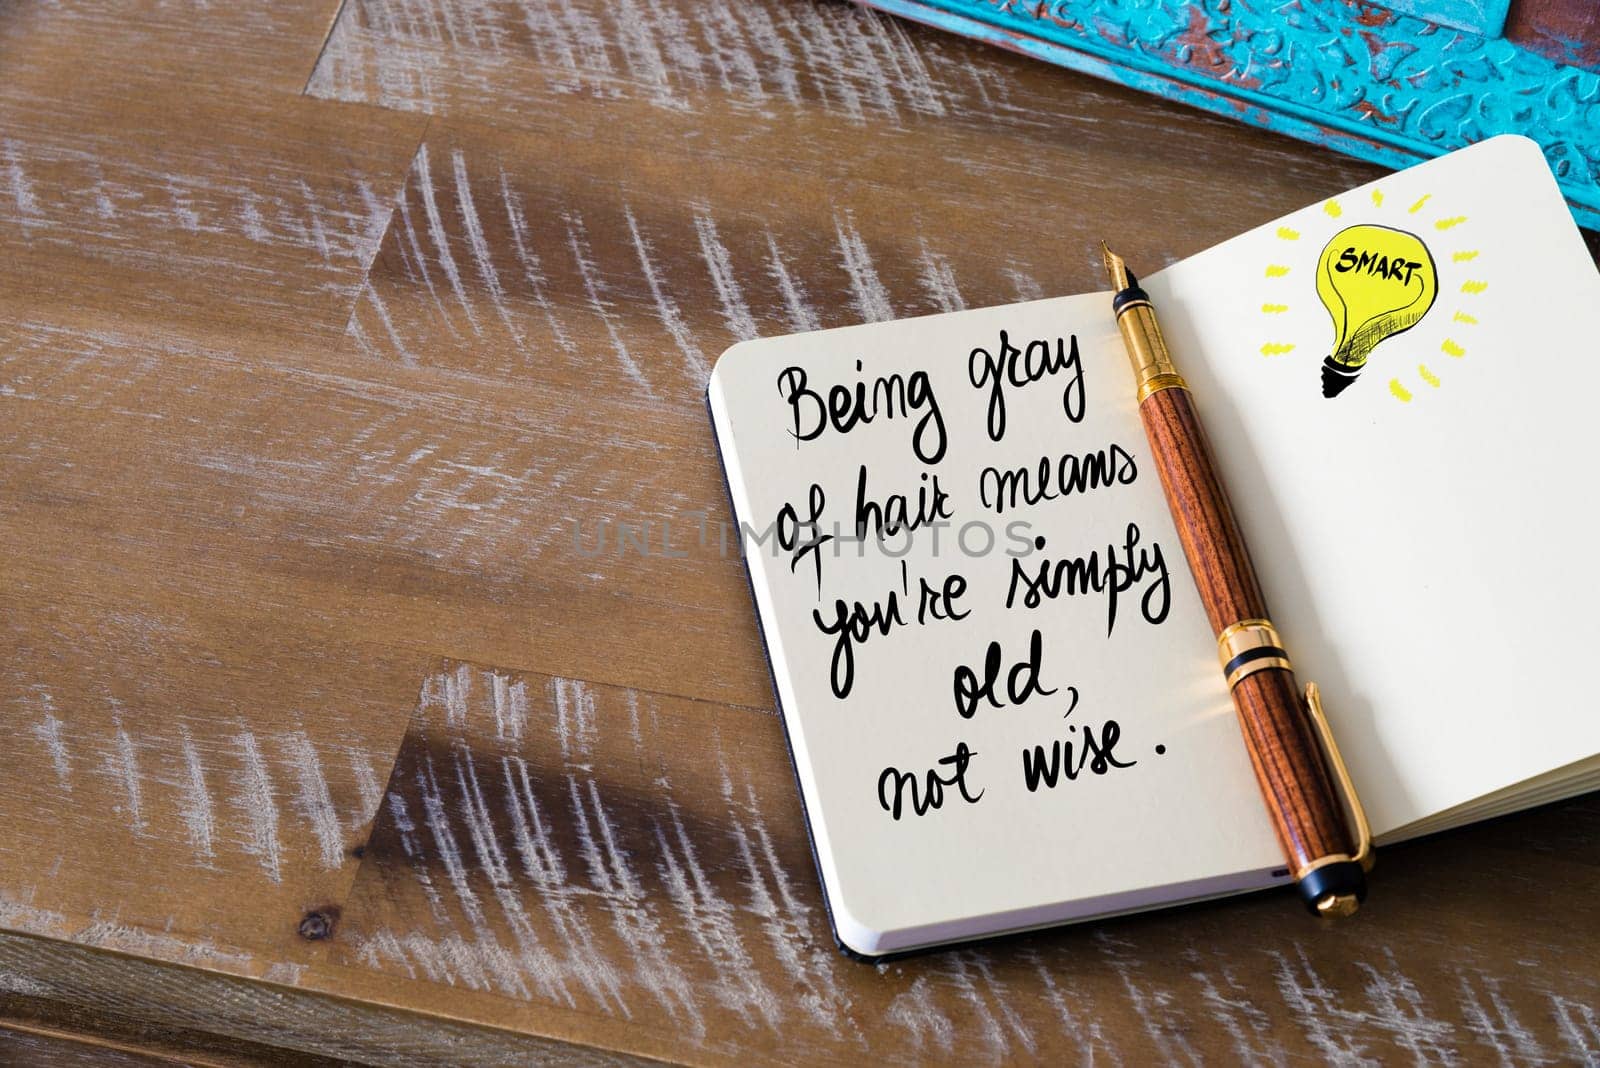 SMART
Being gray
of hair means
you're simply
old,
not wise.
UNLIMPHOTOS